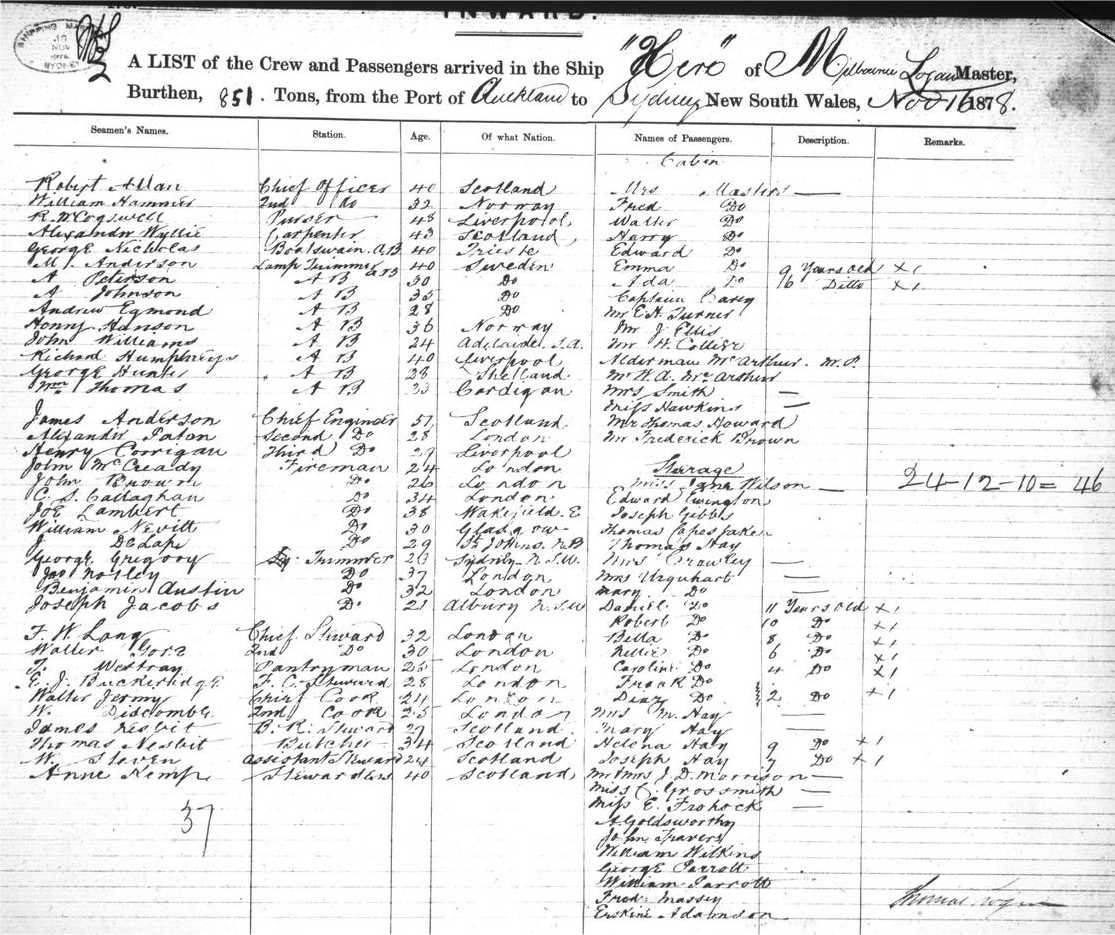 INWARD.
SHIPPING MASTER
16
NOV
1878
SYDNEY
A LIST of the Crew and Passengers arrived in the Ship "Hero" of Melbourne Logan Master,
Burthen, 851. Tons, from the Port of Auckland to Sydney New South Wales, Nov 16 1878.
Seamen's Names. Station. Age. Of what Nation. Names of Passengers. Description. Remarks.
Cabin
Robert Allan Chief Officer 40 Scotland Mrs Masters —
William Hammer 2nd do 32 Norway Fred Do
R. McCogswell Purser 48 Liverpool Walter Do
Alexander Wyllie Carpenter 43 Scotland Harry Do
George Nicholas Boatswain. A.B 40 Trieste Edward Do
M. Anderson Lamp Trimmer A B 40 Sweden Emma Do 9 Years old x1
A Peterson A B 30 Do Ada Do 16 Ditto x1
A Johnson A B 35 Do Captain Carey
Andrew Egmond A B 28 Do Mr E. H. Turner
Henry Hanson A B 36 Norway Mr J. Ellis
John Williams A B 24 Adelaide. S.A. Mr H. Collier
Richard Humphreys A B 40 Liverpool Alderman McArthur. M.P.
George Hunter A B 28 Shetland. Mr W. A. McArthur
Wm Thomas A B 23 Cardigan Mrs Smith —
Miss Hawkins —
James Anderson Chief Engineer 37 Scotland Mr Thomas Howard
Alexander Paton Second Do 28 London Mr Frederick Brown
Henry Corrigan Third Do 27 Liverpool
John McCready Fireman 24 London Steerage
John Brown Do 26 London Miss Wilson — 24-12-10= 46
C. S. Callaghan Do 34 London Edward Ewington
Joe Lambert Do 38 Wakefield. E Joseph Gibbs
William Nevitt Do 30 Glasgow Thomas Capes
J DeLap Do 29 St Johns. N.B Thomas Hay
George Gregory Trimmer 23 Sydney N.S.W. Mrs Crowley —
Jas Notley Do 37 London Mrs Urquhart —
Benjamin Austin Do 32 London Mary Do —
Joseph Jacobs Do 21 Albury N.S.W Daniel Do 11 Years old x1
Robert Do 10 Do x1
F. W. Long Chief Steward 32 London Bella Do 8 Do x1
Walter Gore 2nd Do 30 London Nellie Do 6 Do x1
T. Westray Pantryman 25 London Caroline Do 4 Do x1
E. J. Buckeridge F. C. Steward 28 London Frank Do
Walter Jermy Chief Cook 24 London Do 2 Do x1
W. Discombe 2nd Cook 25 London Mrs M. Hay —
James Nesbit B. R. Steward 27 Scotland Mary Hay —
Thomas Nesbit Butcher 34 Scotland Helena Hay 9 Do x1
W. Steven Assistant Steward 24 Scotland Joseph Hay 7 Do x1
Anne Kemp Stewardess 40 Scotland Mr Mrs J. D. Morrison —
Miss C. Grossmith —
Miss E. Frohock —
37
A. Goldsworthy
John Travers
William Wilkins
George Parrott
William Parrott
Fred: Massey
Erskine Adamson
Thomas Logan